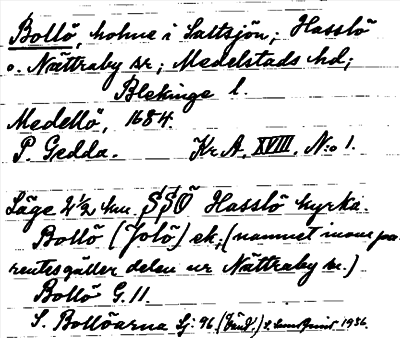 Bollö, holme i Saltsjön; Hasslö
o. Nättraby sn; Medelstads hd;
Blekinge l.
Medellö, 1684.
P. Gedda. Kr. A. XVIII. N:o 1.
Läge 2 1/2 km. SSO Hasslö kyrka.
Bollö (Jolö) ek; (namnet inom pa-
rentes gäller delen ur Nättraby sn.)
Bollö G. 11.
S. Bollöarna Sj: 96 S. 1936.